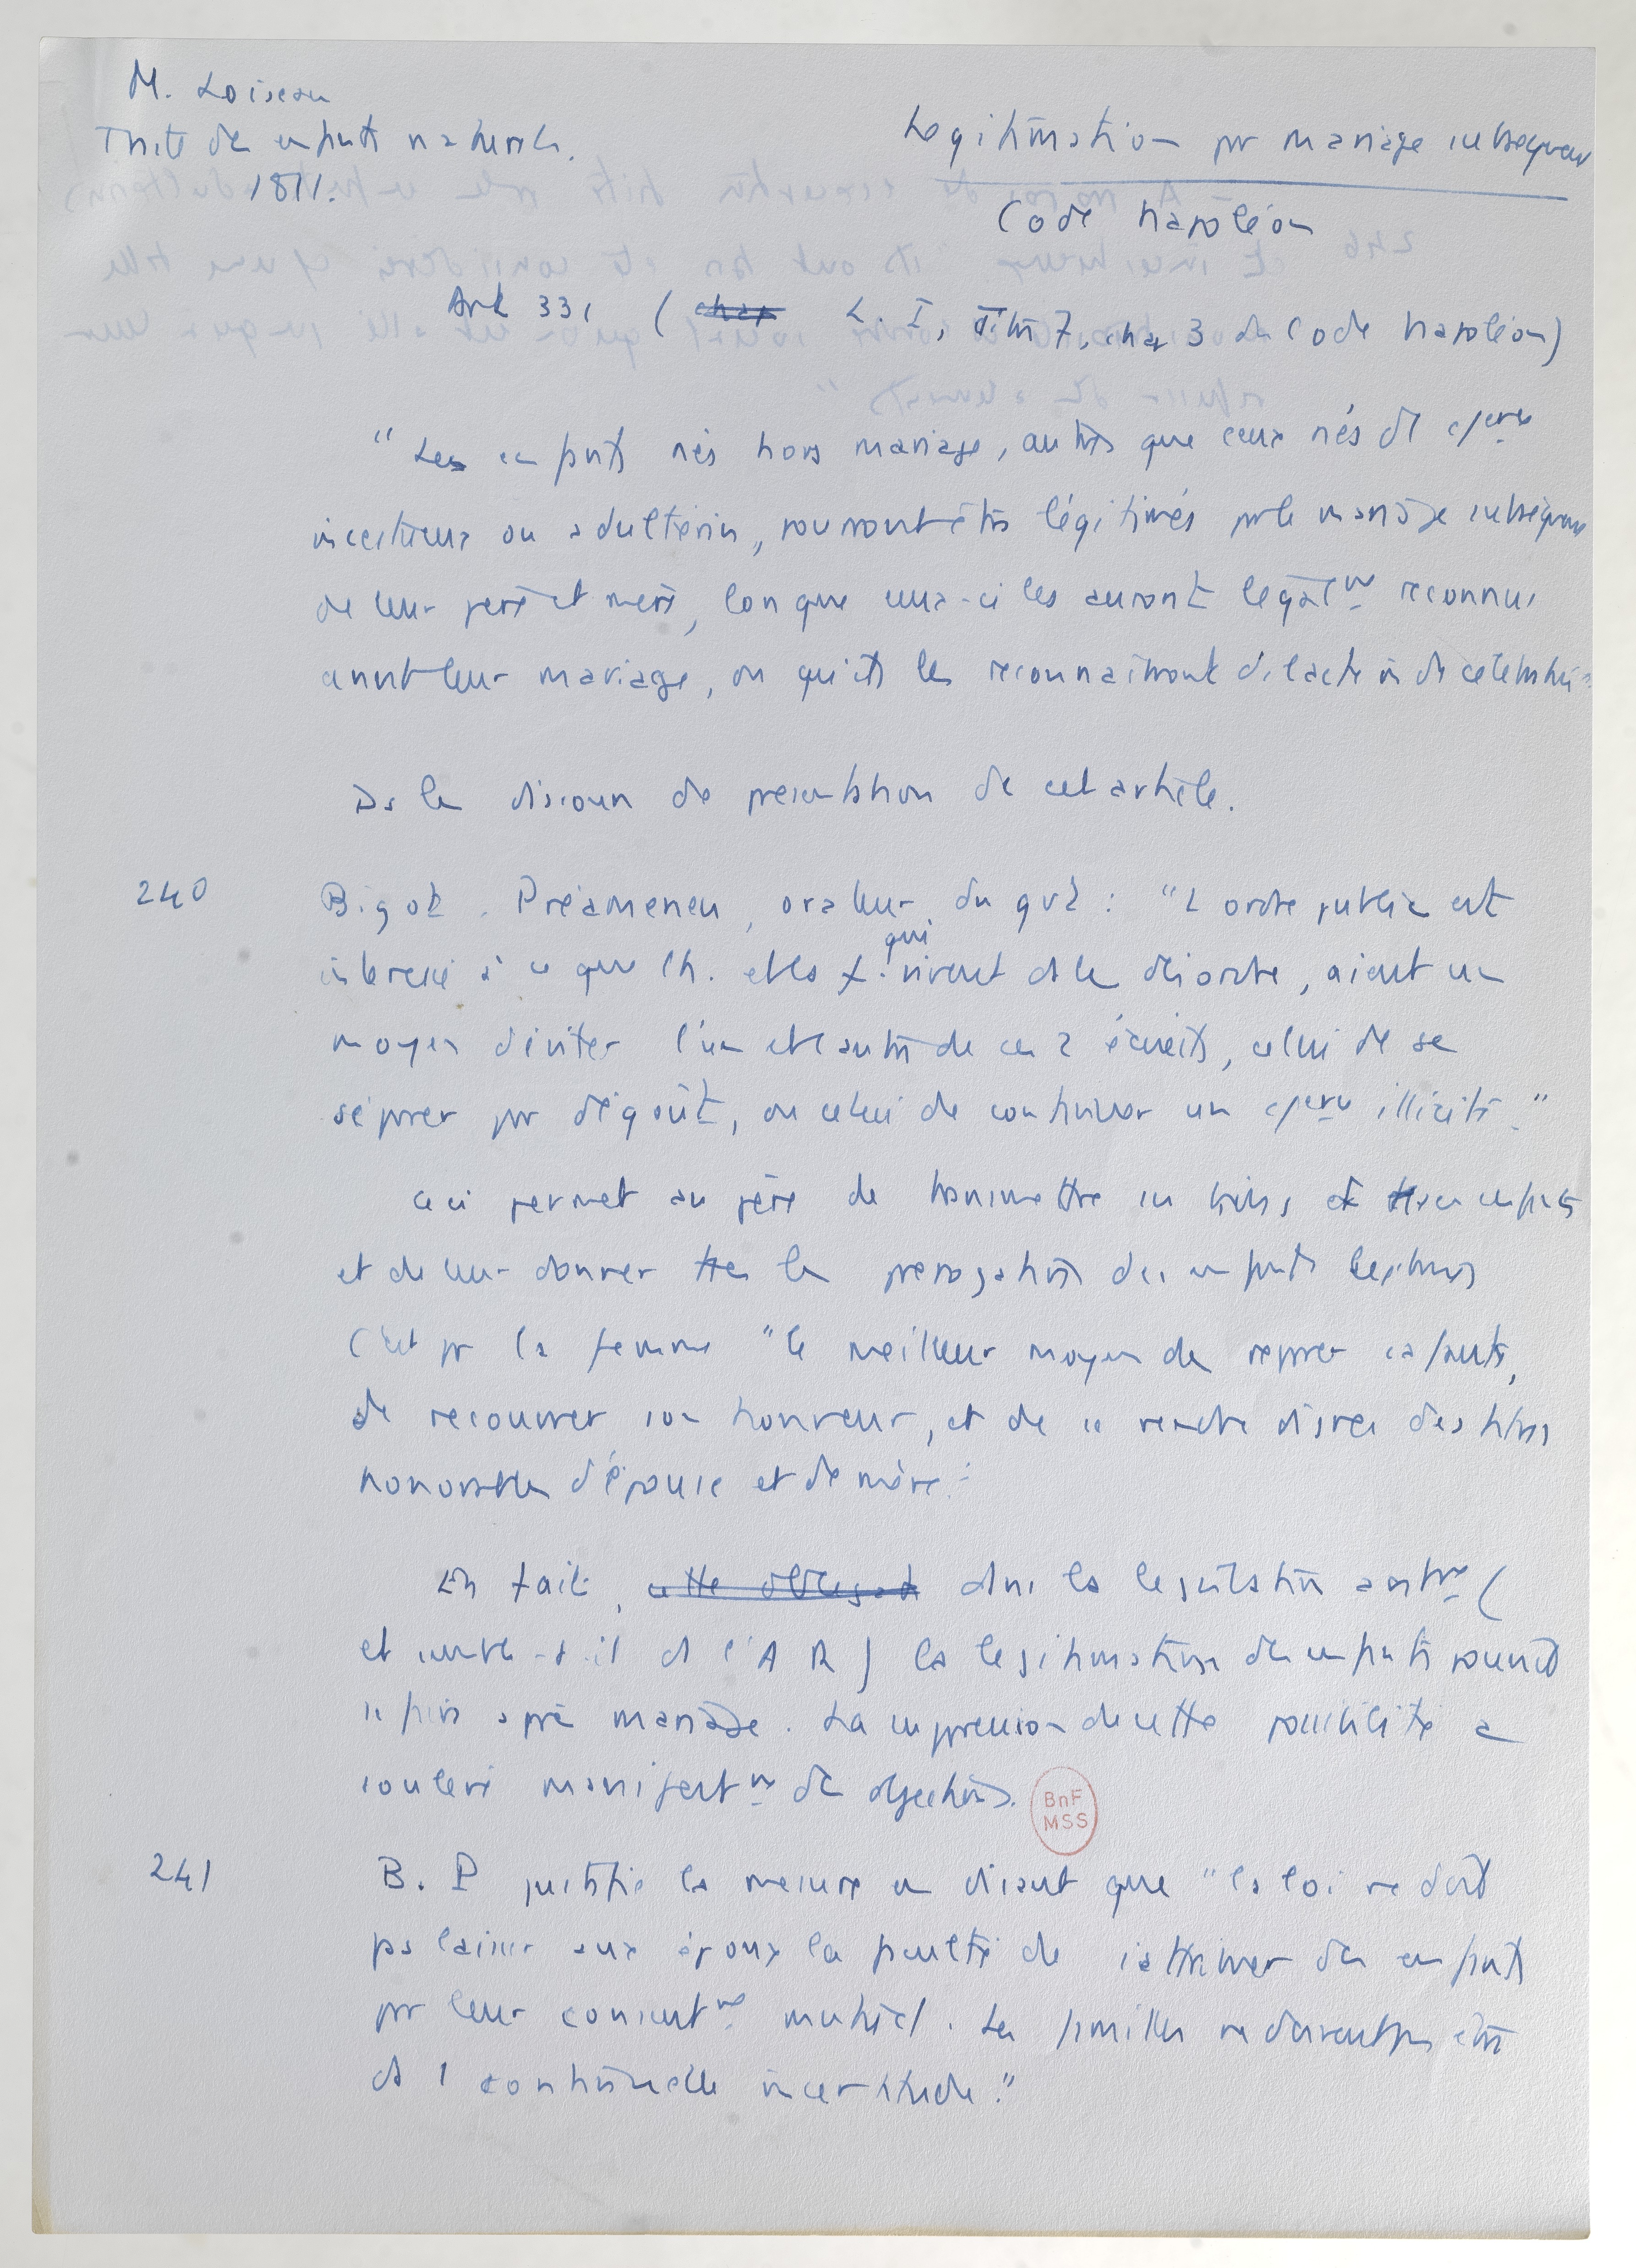 M. Loiseau
Traité des enfants naturels.
1811.
Légitimation pr mariage subséquent
Code Napoléon
Art 331 ( chap L. I, Titre 7, chap 3 du Code Napoléon)
" Les enfants nés hors mariage, autres que ceux nés d'1 cⁱᵉʳᶜᵉ
incestueux ou adultérin, pourront être légitimés par le mariage subséquent
de leur père et mère, lorsque ceux-ci les auront légalᵐᵗ reconnus
avant leur mariage, ou qu'ils les reconnaîtront ds l'acte m de célébration"
Ds le discours de présentation de cet article.
240
Bigot. Préameneu, orateur du gvt : "L'ordre public est
intéressé à ce que l'h. et la f. qui vivent ds le désordre, aient un
moyen d'éviter l'un et l'autre de ces 2 écueils, celui de se
séparer par dégoût, ou celui de continuer un cerce illicite."
Ceci permet au père de transmettre ses biens et titres à ses enfants
et de leur donner ttes les prérogatives des enfants légitimes
C'est pr la femme "le meilleur moyen de réparer sa faute,
de recouvrer son honneur, et de se rendre digne des titres
honorables d'épouse et de mère."
En fait, cette obligat dans la législation antre (
et semble-t-il ds l'A R ) la légitimation des enfants pouvait
se faire après mariage. La suppression de cette possibilité a
soulevé manifestᵐᵗ des objections.
BnF
MSS
241
B. P justifie la mesure en disant que "la loi ne doit
pas laisser aux époux la faculté de s'attribuer des enfants
par leur consentᵐᵗ mutuel. Les familles ne doivent pas être
ds 1 continuelle incertitude."